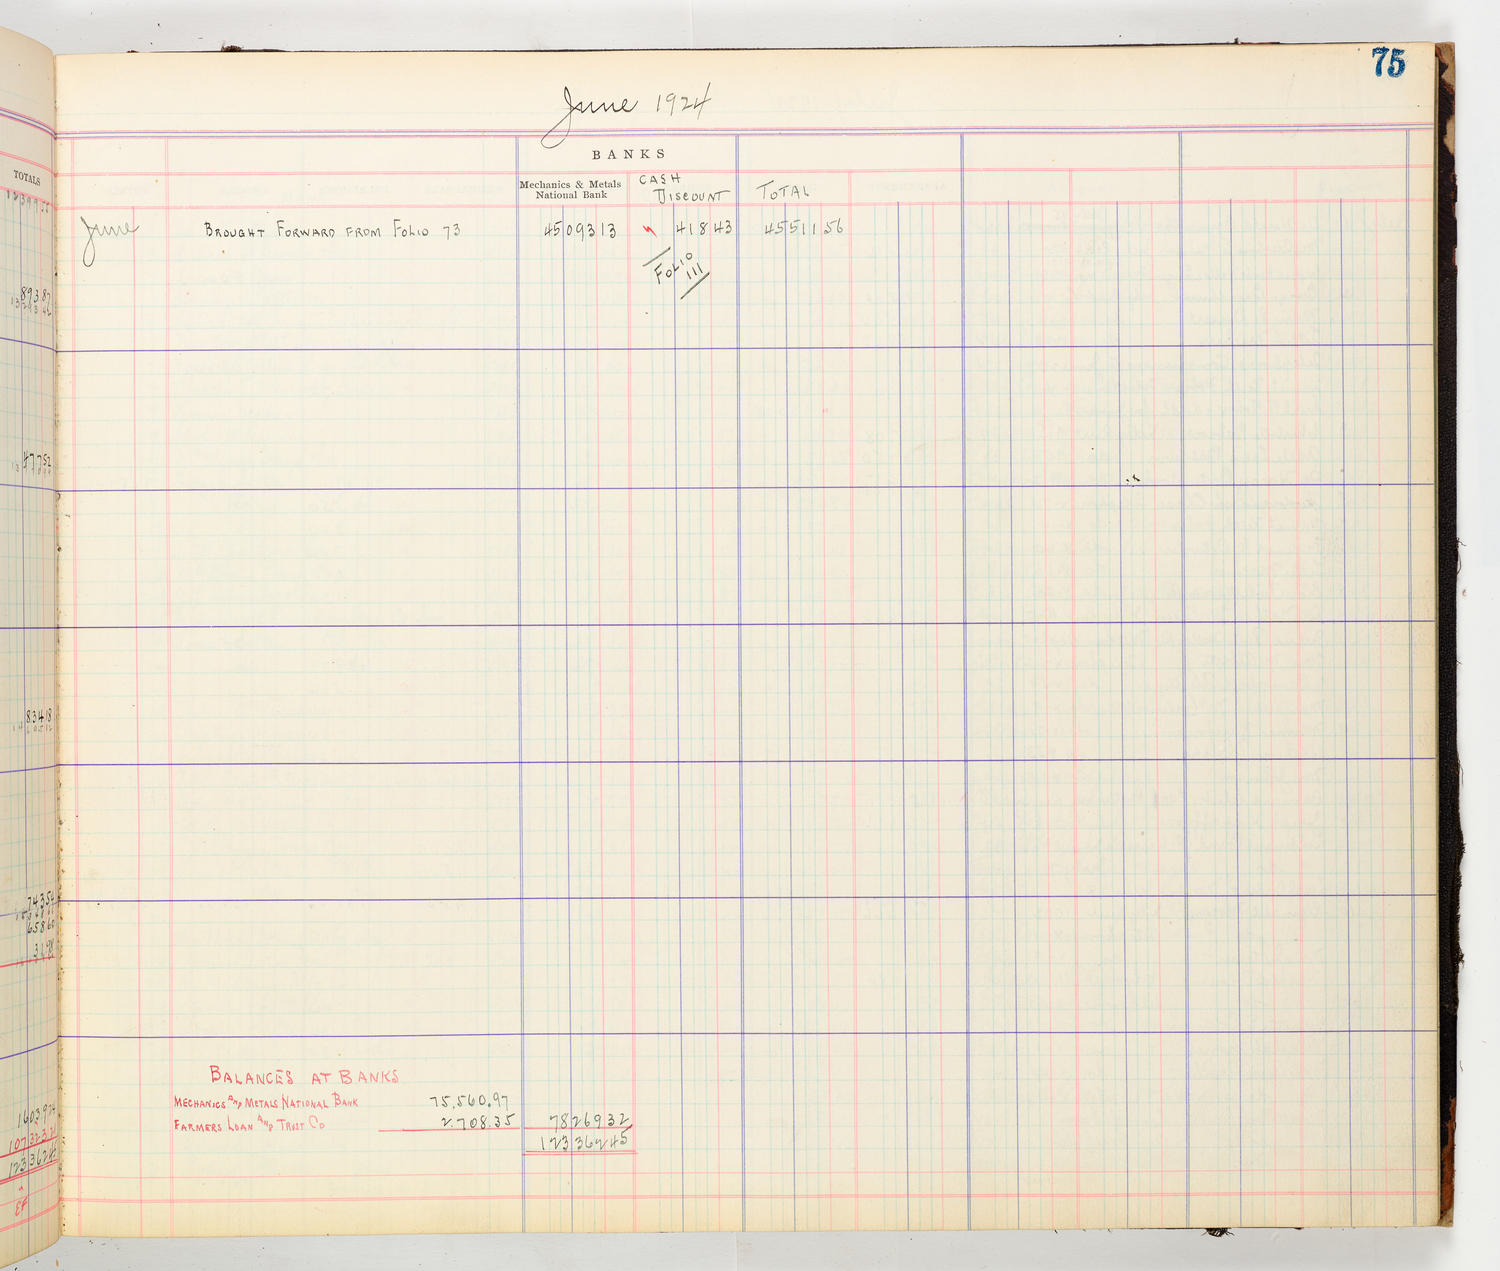 75
June 1924
TOTALS
BANKS
Mechanics & Metals National Bank
CASH DISCOUNT
TOTAL
June BROUGHT FORWARD FROM FOLIO 73 4509313 41843 4551156
FOLIO 111
89387
47752
83418
74354
65860
3198
BALANCES AT BANKS
MECHANICS AND METALS NATIONAL BANK 75,560.97
FARMERS LOAN AND TRUST CO 2.708.35 7826932
12336245
1603924
10732321
12336245